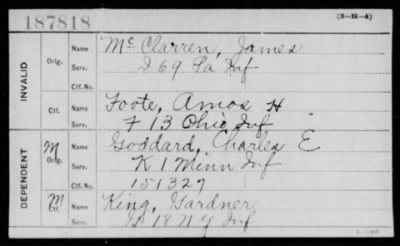 187818
(3-H-4)
INVALID
Orig. Name Mc Clarren, James
Serv. I 69 Pa Inf
Ctf. No.
Ctf. Name Foote, Amos H
Serv. F 13 Ohio Inf
DEPENDENT
M Orig. Name Goddard, Charles E
Serv. K 1 Minn Inf
Ctf. No. 151327
M Ctf. Name King, Gardner
Serv. 18 N Y Inf